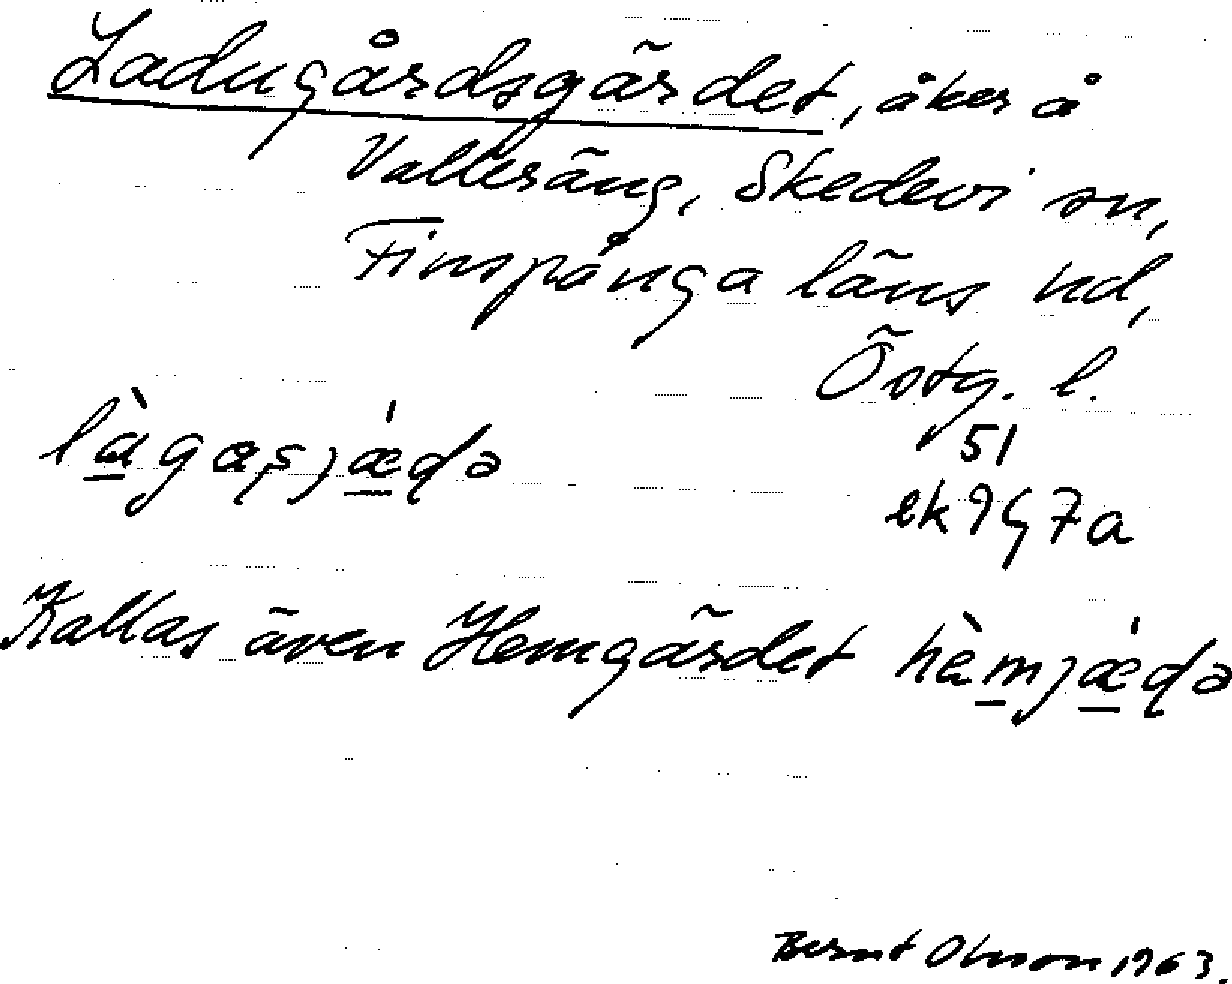 Ladugårdsgärdet, åker å
Vallersäng, Skedevi sn,
Finspånga läns hd,
Östg. l.
51
ek 9G7a
Kallas även Hemgärdet
Bernt Olsson 1963.